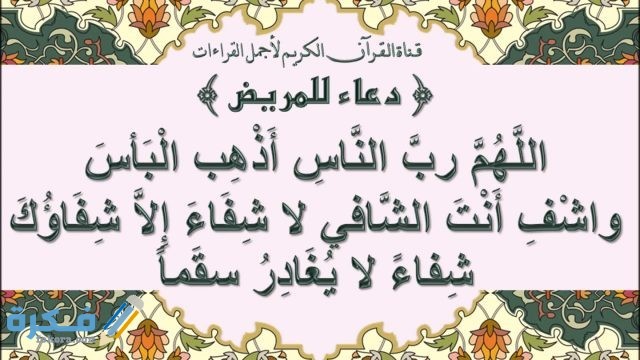 قناة القرآن الكريم لأجمل القراءات
﴿ دعاء للمريض ﴾
اللَّهُمَّ ربَّ النَّاسِ أَذْهِب الْبَأسَ
واشْفِ أَنْتَ الشَّافي لا شِفَاءَ إِلاَّ شِفَاؤُكَ
شِفاءً لا يُغَادِرُ سقَماً
فكرة